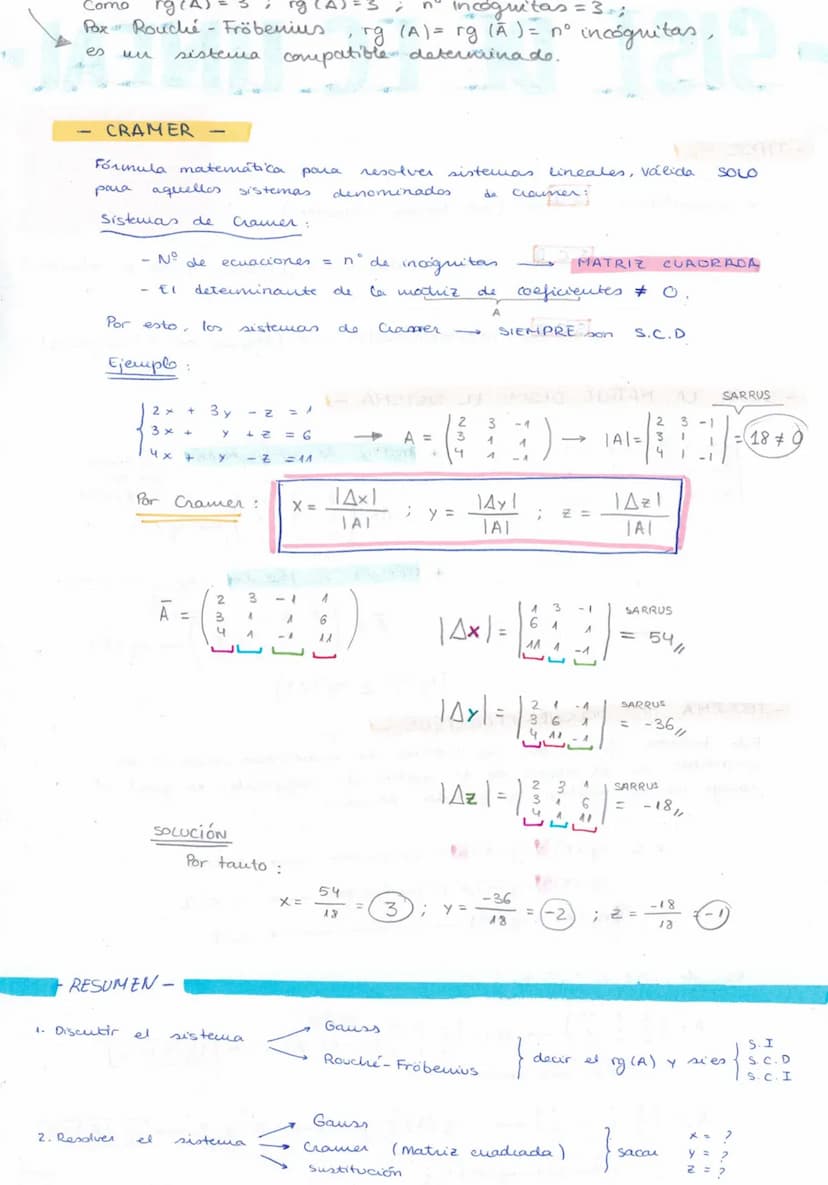 Como rg(A) = 3 ; rg(A) = 3 ; nº incógnitas = 3 ;
Por Rouché-Fröbenius, rg (A) = rg (Ā) = nº incógnitas,
es un sistema compatible determinado.
- CRAMER -
Fórmula matemática para resolver sistemas lineales, válida SOLO
para aquellos sistemas denominados de Cramer:
Sistemas de Cramer:
- Nº de ecuaciones = nº de incógnitas → MATRIZ CUADRADA
- El determinante de la matriz de coeficientes ≠ 0.
A
Por esto, los sistemas de Cramer → SIEMPRE son S.C.D
Ejemplo:
SARRUS
2x + 3y - z = 1
3x + y + z = 6
4x + y - z = 11
→ A = ( 2 3 -1
3 1 1
4 1 -1 ) → |A| = | 2 3 -1
3 1 1
4 1 -1 | = 18 ≠ 0
Por Cramer: x = |Δx| / |A| ; y = |Δy| / |A| ; z = |Δz| / |A|
Ā = ( 2 3 -1 1
3 1 1 6
4 1 -1 11 )
|Δx| = | 1 3 -1
6 1 1
11 1 -1 | SARRUS = 54
|Δy| = | 2 1 -1
3 6 1
4 11 -1 | SARRUS = -36
|Δz| = | 2 3 1
3 1 6
4 1 11 | SARRUS = -18
SOLUCIÓN
Por tanto:
x = 54/18 = 3 ; y = -36/18 = -2 ; z = -18/18 = -1
- RESUMEN -
1. Discutir el sistema → Gauss
→ Rouché-Fröbenius } decir el rg(A) y si es { S.I
S.C.D
S.C.I
2. Resolver el sistema → Gauss
→ Cramer (Matriz cuadrada) } sacar x = ?
y = ?
z = ?
→ sustitución